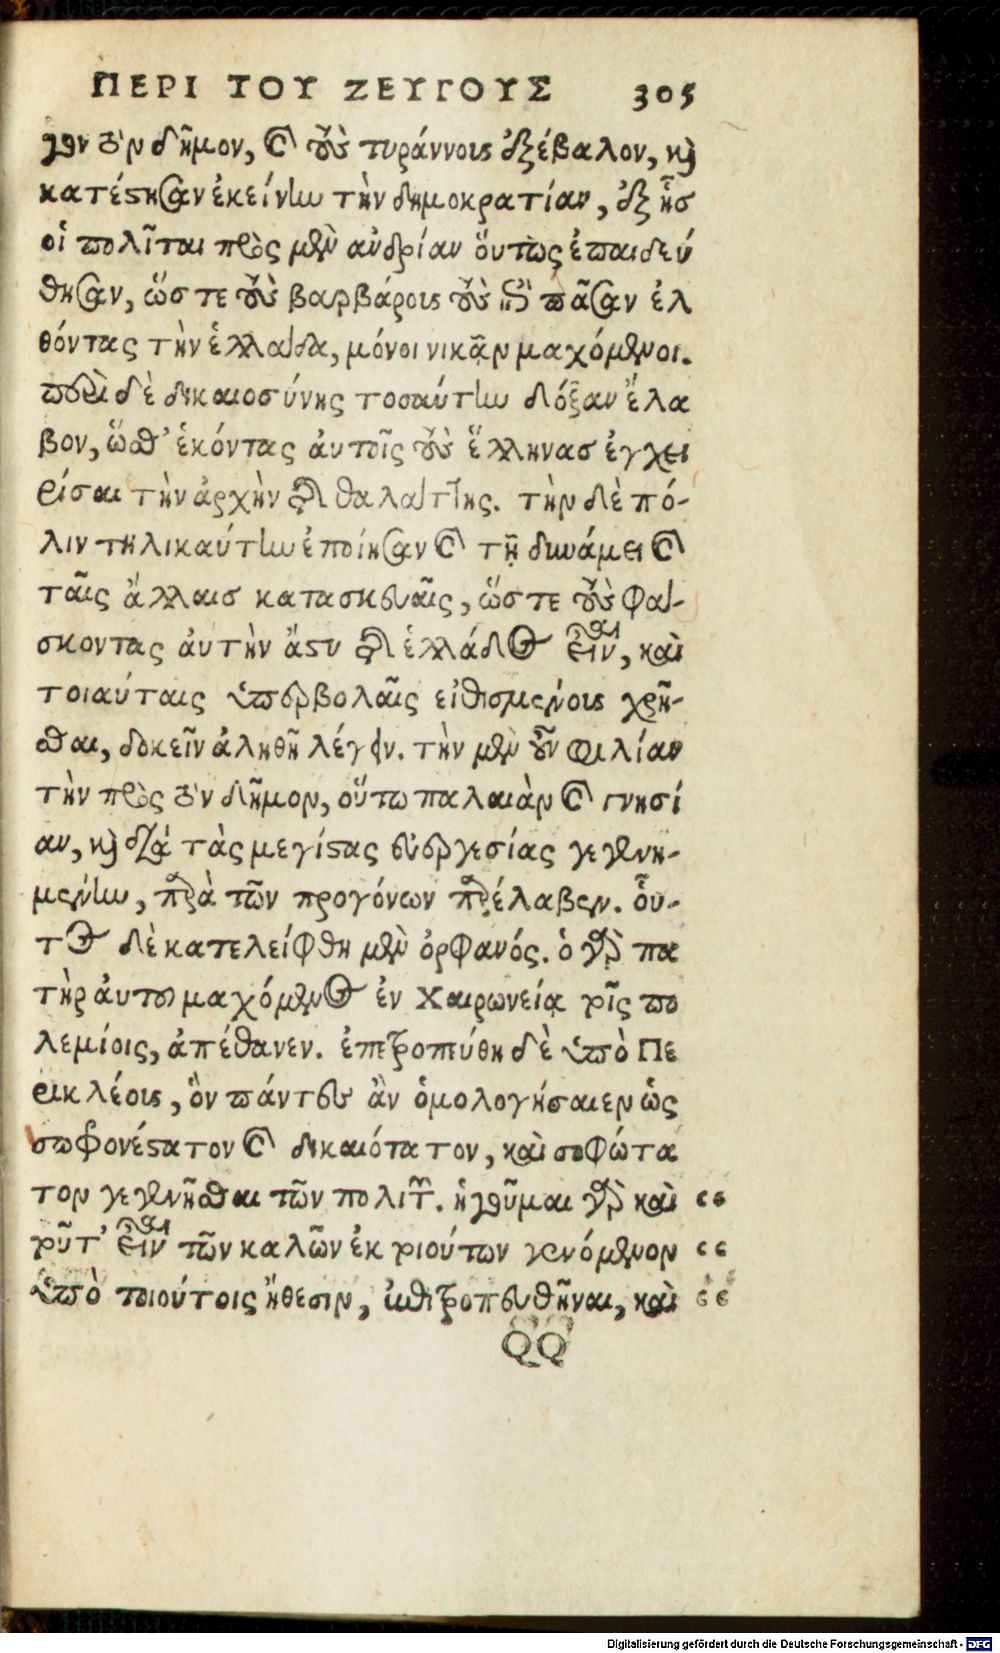 ΠΕΡΙ ΤΟΥ ΖΕΥΓΟΥΣ 305
γον τὸν δῆμον, καὶ τοὺς τυράννους ἐξέβαλον, καὶ
κατέστησαν ἐκείνην τὴν δημοκρατίαν, ἐξ ἧσ
οἱ πολῖται πρὸς μὲν ἀνδρίαν ὅυτως ἐπαιδεύ
θησαν, ὥστε τοὺς βαρβάρους τοὺς ἐπὶ πᾶσαν ἐλ
θόντας τὴν ἑλλάδα, μόνοι νικᾷν μαχόμενοι.
περὶ δὲ δικαιοσύνης τοσαύτην δόξαν ἔλα
βον, ὥσθ' ἑκόντας ἀυτοῖς τοὺς ἕλληνασ ἐγχει
ρίσαι τὴν ἀρχὴν τῆς θαλάττης. τὴν δὲ πό-
λιν τηλικαύτην ἐποίησαν καὶ τῇ δυνάμει καὶ
ταῖς ἄλλαισ κατασκευαῖς, ὥστε τοὺς φά-
σκοντας ἀυτὴν ἄστυ τῆς ἑλλάδος εἶναι, καὶ
τοιαύταις ὑπερβολαῖς εἰθισμένους χρῆ-
σθαι, δοκεῖν ἀληθῆ λέγειν. τὴν μὲν οὖν φιλίαν
τὴν πρὸς τὸν δῆμον, οὕτω παλαιὰν καὶ γνησί
αν, καὶ διὰ τὰς μεγίστας εὐεργεσίας γεγενη-
μένην, παρὰ τῶν προγόνων παρέλαβεν. οὗ-
τος δὲ κατελείφθη μὲν ὀρφανός. ὁ γὰρ πα
τὴρ ἀυτοῦ μαχόμενος ἐν Χαιρωνείᾳ τοῖς πο
λεμίοις, ἀπέθανεν. ἐπετροπεύθη δὲ ὑπὸ Πε
ρικλέους, ὃν πάντες ἂν ὁμολογήσαιεν ὡς
σωφρονέστατον καὶ δικαιότατον, καὶ σοφώτα
τον γεγενῆσθαι τῶν πολιτῶν. ἡγοῦμαι γὰρ καὶ “
τοῦτ' εἶναι τῶν καλῶν ἐκ τοιούτων γενόμενον “
ὑπὸ τοιούτοις ἤθεσιν, ἐπιτροπευθῆναι, καὶ “
QQ
Digitalisierung gefördert durch die Deutsche Forschungsgemeinschaft - DFG